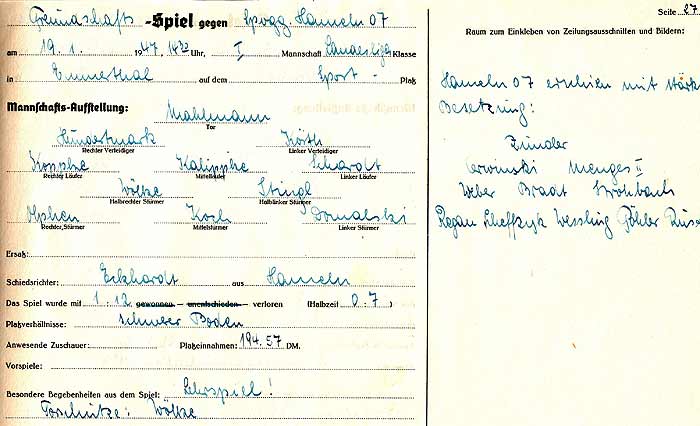 Freundschafts-Spiel gegen Spvgg. Hameln 07
am 19. 1. 1947 14 30 Uhr, I Mannschaft Landesliga Klasse
in Emmerthal auf dem Sport - Platz
Mannschafts-Aufstellung: Mahlmann
Tor
Hundertmark Köth
Rechter Verteidiger Linker Verteidiger
Koppke Kalippke Eckardt
Rechter Läufer Mittelläufer Linker Läufer
Wölke Stingl
Halbrechter Stürmer Halblinker Stürmer
Olphen Koch Domalski
Rechter Stürmer Mittelstürmer Linker Stürmer
Ersatz:
Schiedsrichter: Eckhardt aus Hameln
Das Spiel wurde mit 1 : 12 gewonnen — unentschieden — verloren (Halbzeit 0:7)
Platzverhältnisse: schwerer Boden
Anwesende Zuschauer: Platzeinnahmen: 194.57 DM.
Vorspiele:
Besondere Begebenheiten aus dem Spiel: Lehrspiel!
Torschütze: Wölke
Seite 27
Raum zum Einkleben von Zeitungsausschnitten und Bildern:
Hameln 07 erschien mit stärk
Besetzung:
Zünder
Menges II
Weber Bradt
Wessling Göhler